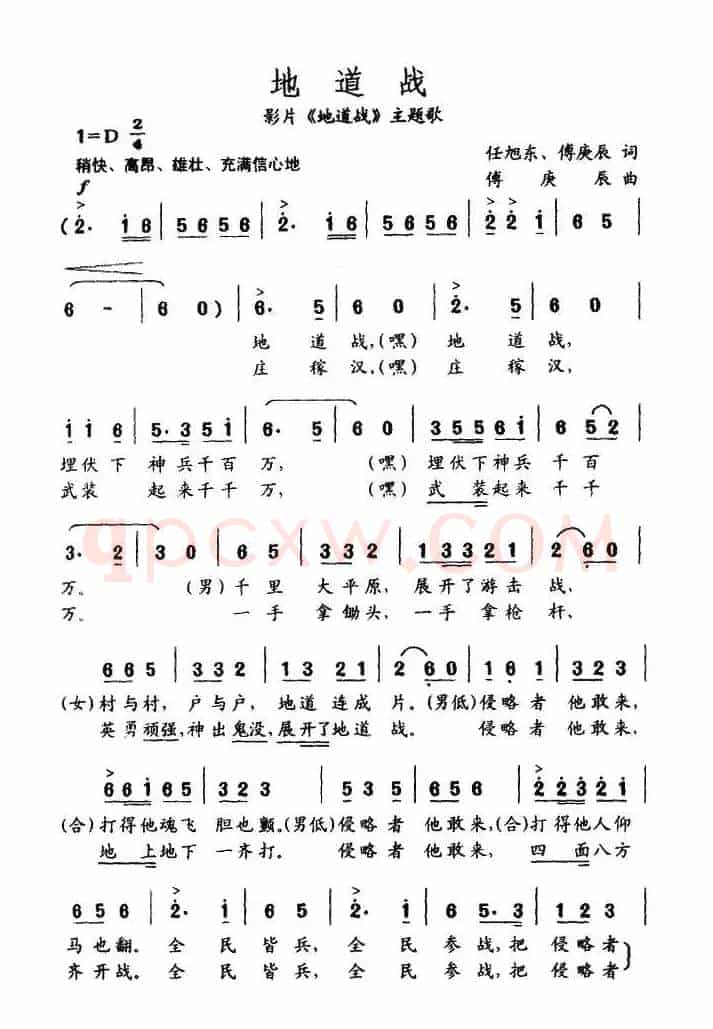 地道战
影片《地道战》主题歌
1=D 2/4
稍快、高昂、雄壮、充满信心地
任旭东、傅庚辰 词
傅庚辰 曲
f
(2· 16 | 5656 | 2· 16 | 5656 | 22 1 | 6 5 |
6 - | 6 0) | 6· 5 | 6 0 | 2· 5 | 6 0 |
地 道 战,(嘿) 地 道 战,
庄 稼 汉,(嘿) 庄 稼 汉,
11 6 | 5·3 51 | 6· 5 | 6 0 | 35561 | 6 52 |
埋伏下 神兵千百 万, (嘿) 埋伏下神兵 千 百
武装 起来千千 万, (嘿) 武 装起来 千 千
3· 2 | 3 0 | 6 5 | 332 | 13321 | 2 60 |
qpcxw.com
万。 (男)千 里 大平原, 展开了游击 战,
万。 一 手 拿锄头, 一手 拿枪 杆,
665 | 332 | 13 21 | 2 60 | 1 61 | 323 |
(女)村与村, 户与户, 地道 连成 片。(男低)侵略者 他敢来,
英勇顽强,神出鬼没,展开了地道 战。 侵略者 他敢来,
66165 | 323 | 535 | 623 | 22321 |
(合)打得他魂飞 胆也颤。(男低)侵略者 他敢来,(合)打得他人仰
地上地下 一齐打。 侵略者 他敢来, 四面八方
656 | 2· 1 | 6 5 | 2· 1 | 6 5·3 | 5 6 |
马也翻。 全 民 皆兵, 全 民 参战,把 侵略者
齐开战。 全 民 皆兵, 全 民 参战,把 侵略者